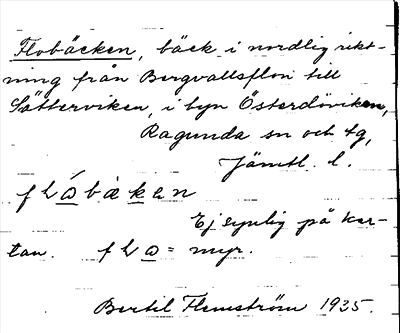 Flobäcken, bäck i nordlig rikt-
ning från Bergvallsflon till
Sätterviken, i byn Österdöviken,
Ragunda sn och tg,
Jämtl. l.
flåbäken
Ej synlig på kar-
tan. fla = myr.
Bertil Flemström 1935.